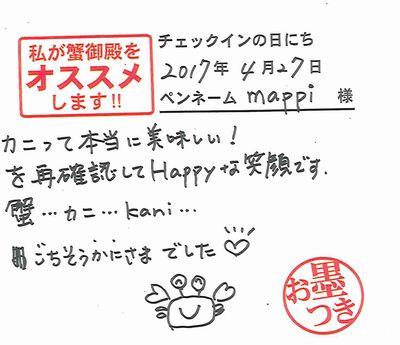 私が蟹御殿を
オススメ
します!!
チェックインの日にち
2017年 4月27日
ペンネーム mappi 様
カニって本当に美味しい!
を再確認してHappyな笑顔です.
蟹…カニ…kani…
ごちそうかにさま でした♡
お墨つき